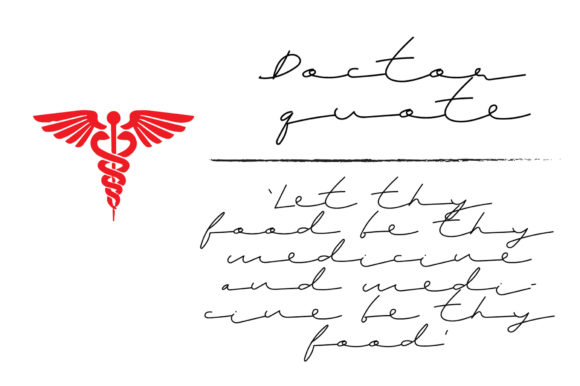 Doctor
quote
'Let thy
food be thy
medicine
and medi-
cine be thy
food'